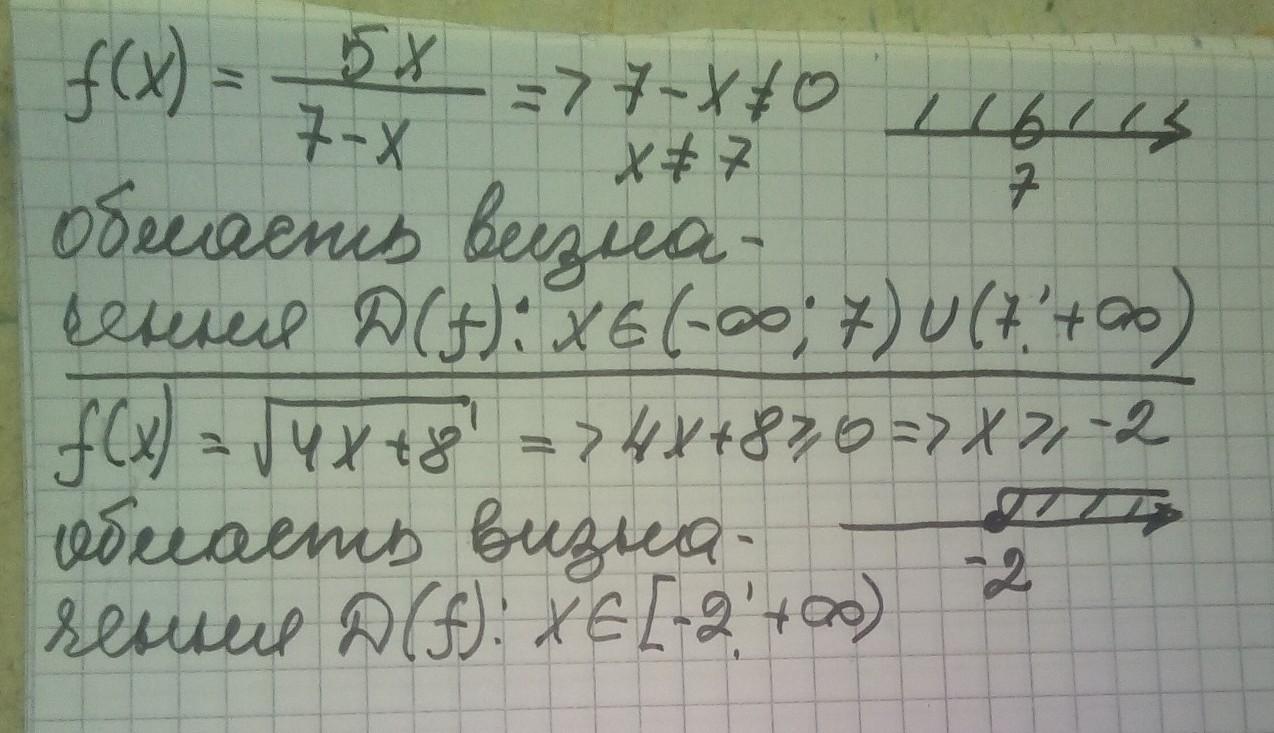 f(x) = 5x / 7-x => 7-x≠0
x≠7
7
область визна-
чення D(f): x∈(-∞; 7)∪(7; +∞)
f(x) = √4x+8 => 4x+8⩾0 => x⩾-2
область визна-
-2
чення D(f): x∈[-2; +∞)